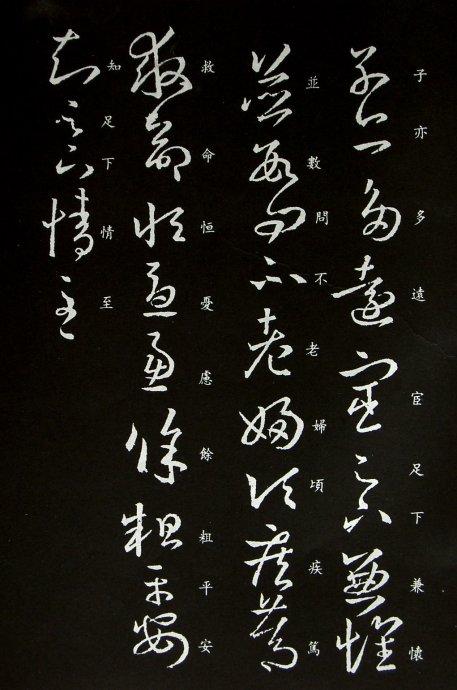 子亦多遠宦足下兼懷
並數問不老婦頃疾篤
救命恒憂慮餘粗平安
知足下情至